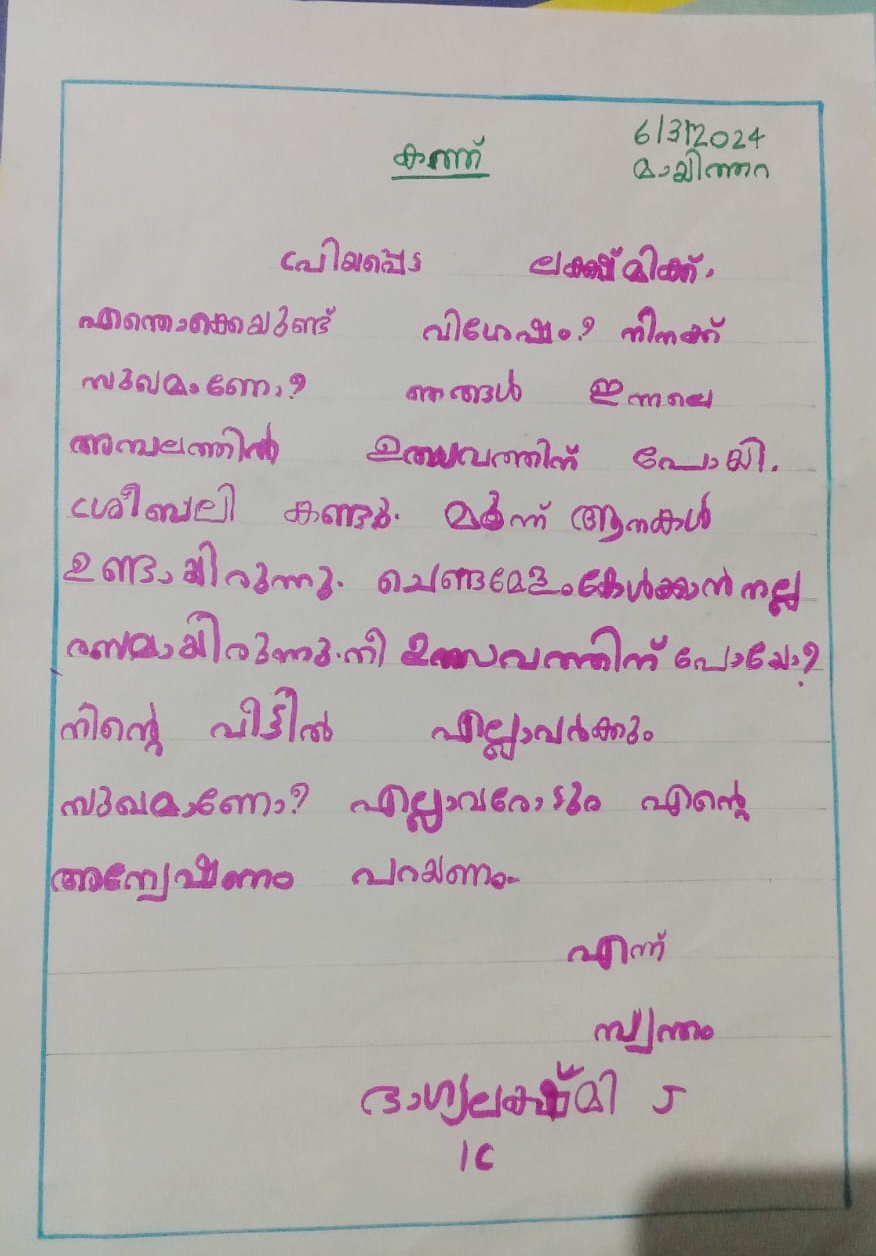 കത്ത്
6/3/2024
മായിത്തറ
പ്രിയപ്പെട്ട ലക്ഷ്മിക്ക്,
എന്തൊക്കെയുണ്ട് വിശേഷം? നിനക്ക്
സുഖമാണോ? ഞങ്ങൾ ഇന്നലെ
അമ്പലത്തിൽ ഉത്സവത്തിന് പോയി.
ശ്രീബലി കണ്ടു. മൂന്ന് ആനകൾ
ഉണ്ടായിരുന്നു. ചെണ്ടമേളം കേൾക്കാൻ നല്ല
രസമായിരുന്നു. നീ ഉത്സവത്തിന് പോയോ?
നിന്റെ വീട്ടിൽ എല്ലാവർക്കും
സുഖമാണോ? എല്ലാവരോടും എന്റെ
അന്വേഷണം പറയണം.
എന്ന്
സ്വന്തം
ഭാഗ്യലക്ഷ്മി J
1C